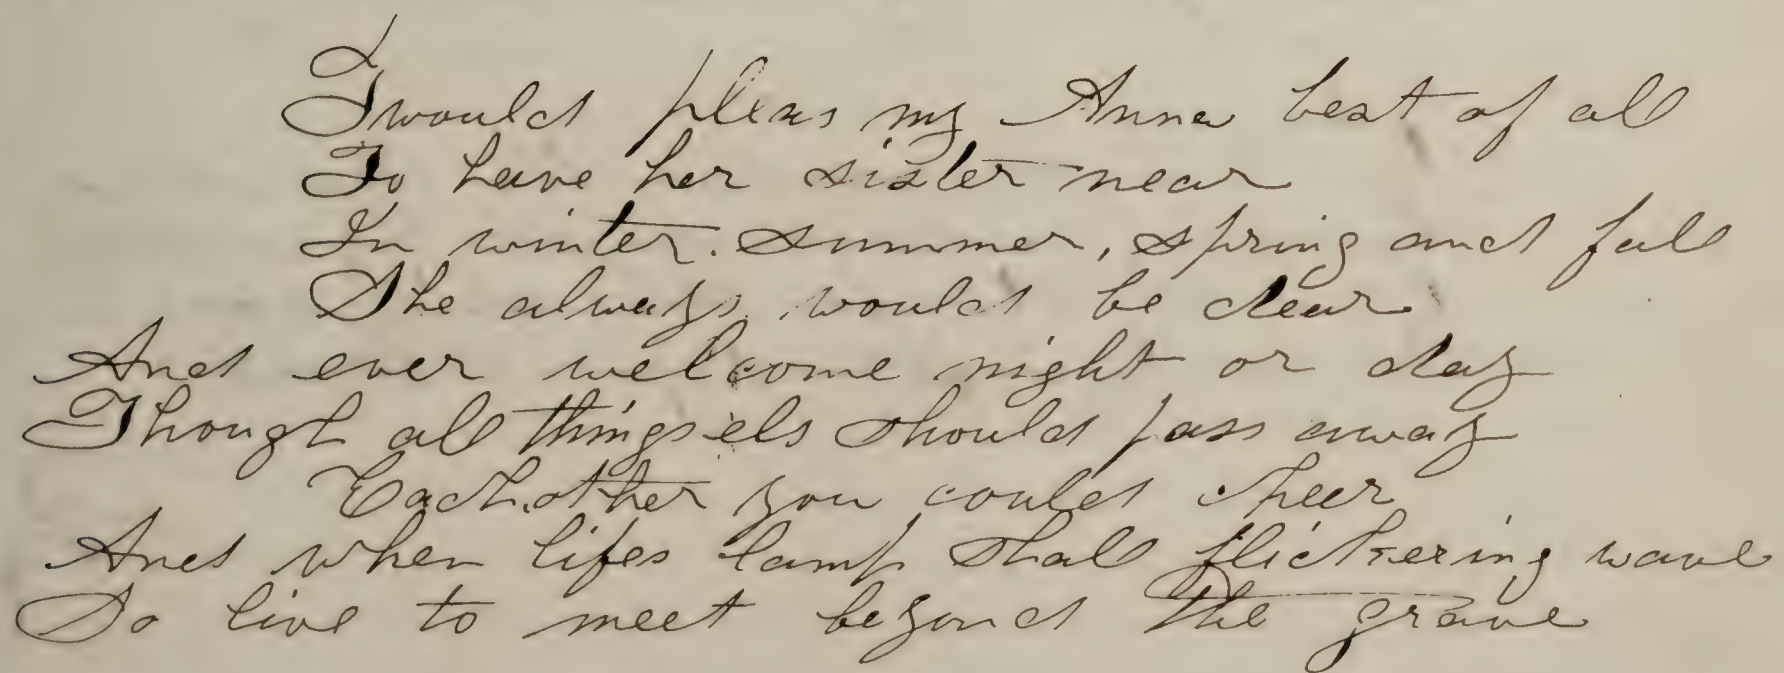 Twould pleas my Anna best of all
To have her sister near
In winter. summer, spring and fall
She always would be dear
And ever welcome night or day
Though all things els should pass away
Each other you could cheer
And when lifes lamp shall flickering wave
So live to meet beyond the grave